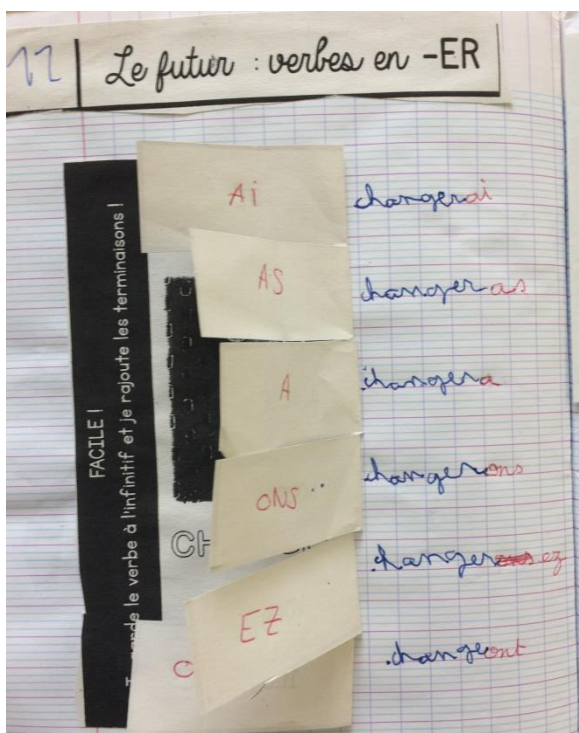 11 Le futur : verbes en -ER
FACILE !
garde le verbe à l'infinitif et je rajoute les terminaisons !
Ai changerai
AS changeras
A changera
ONS changerons
CH
EZ changerez
C changeont